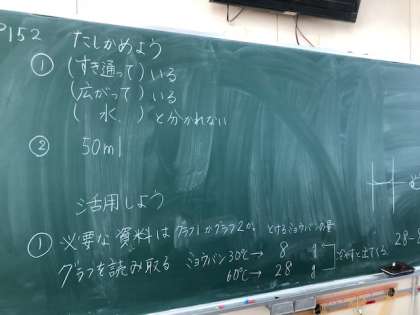 P152 たしかめよう
① (すき通って) いる
(広がって) いる
( 水 ) と分かれない
② 50ml
活用しよう
① 必要な資料はグラフ1かグラフ2か。 とけるミョウバンの量
グラフを読み取る ミョウバン30℃→ 8 g
60℃→ 28 g
ひやすと出てくる
28-8